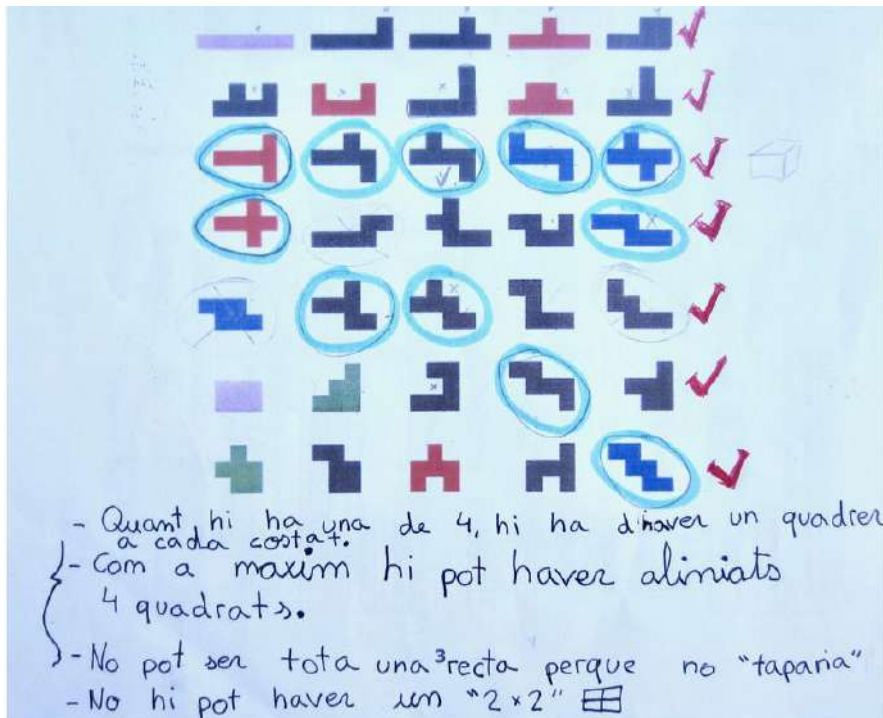 - Quant hi ha una de 4, hi ha d'haver un quadrer
a cada costat.
- Com a maxim hi pot haver aliniats
4 quadrats.
- No pot ser tota una recta perque no "taparia"
- No hi pot haver un "2x2"